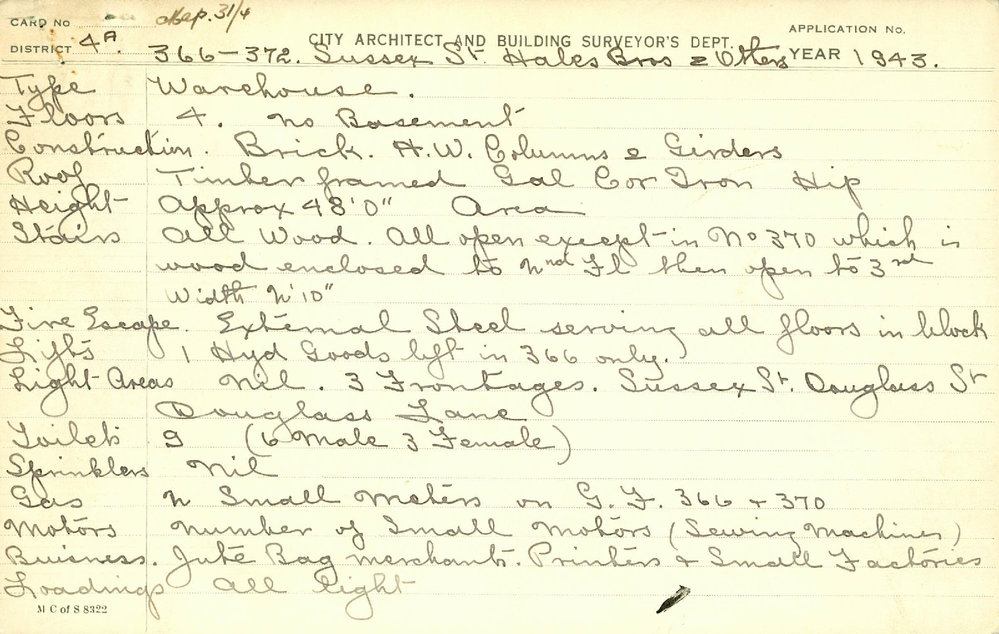 CARD NO Map. 31/4
CITY ARCHITECT AND BUILDING SURVEYOR'S DEPT.
APPLICATION NO.
DISTRICT 4A. 366-372. Sussex St. Hales Bros & Others YEAR 1943.
Type Warehouse.
Floors 4. no Basement
Construction. Brick. H.W. Columns & Girders
Roof Timber framed Gal Cor Iron Hip
Height Approx 48'0" Area
Stairs All Wood. All open except in No 370 which is
wood enclosed to 2nd Fl then open to 3rd
Width 2'10"
Fire Escape. External Steel serving all floors in block
Lifts 1 Hyd Goods lift in 366 only.
Light Areas Nil. 3 Frontages. Sussex St. Douglass St
Douglass Lane
Toilets 9 (6 Male 3 Female)
Sprinklers Nil
Gas 2 Small meters on G.F. 366 + 370
Motors Number of Small Motors (Sewing Machines)
Buisness. Jute Bag merchants. Printers + Small Factories
Loadings All light
M C of S 8322